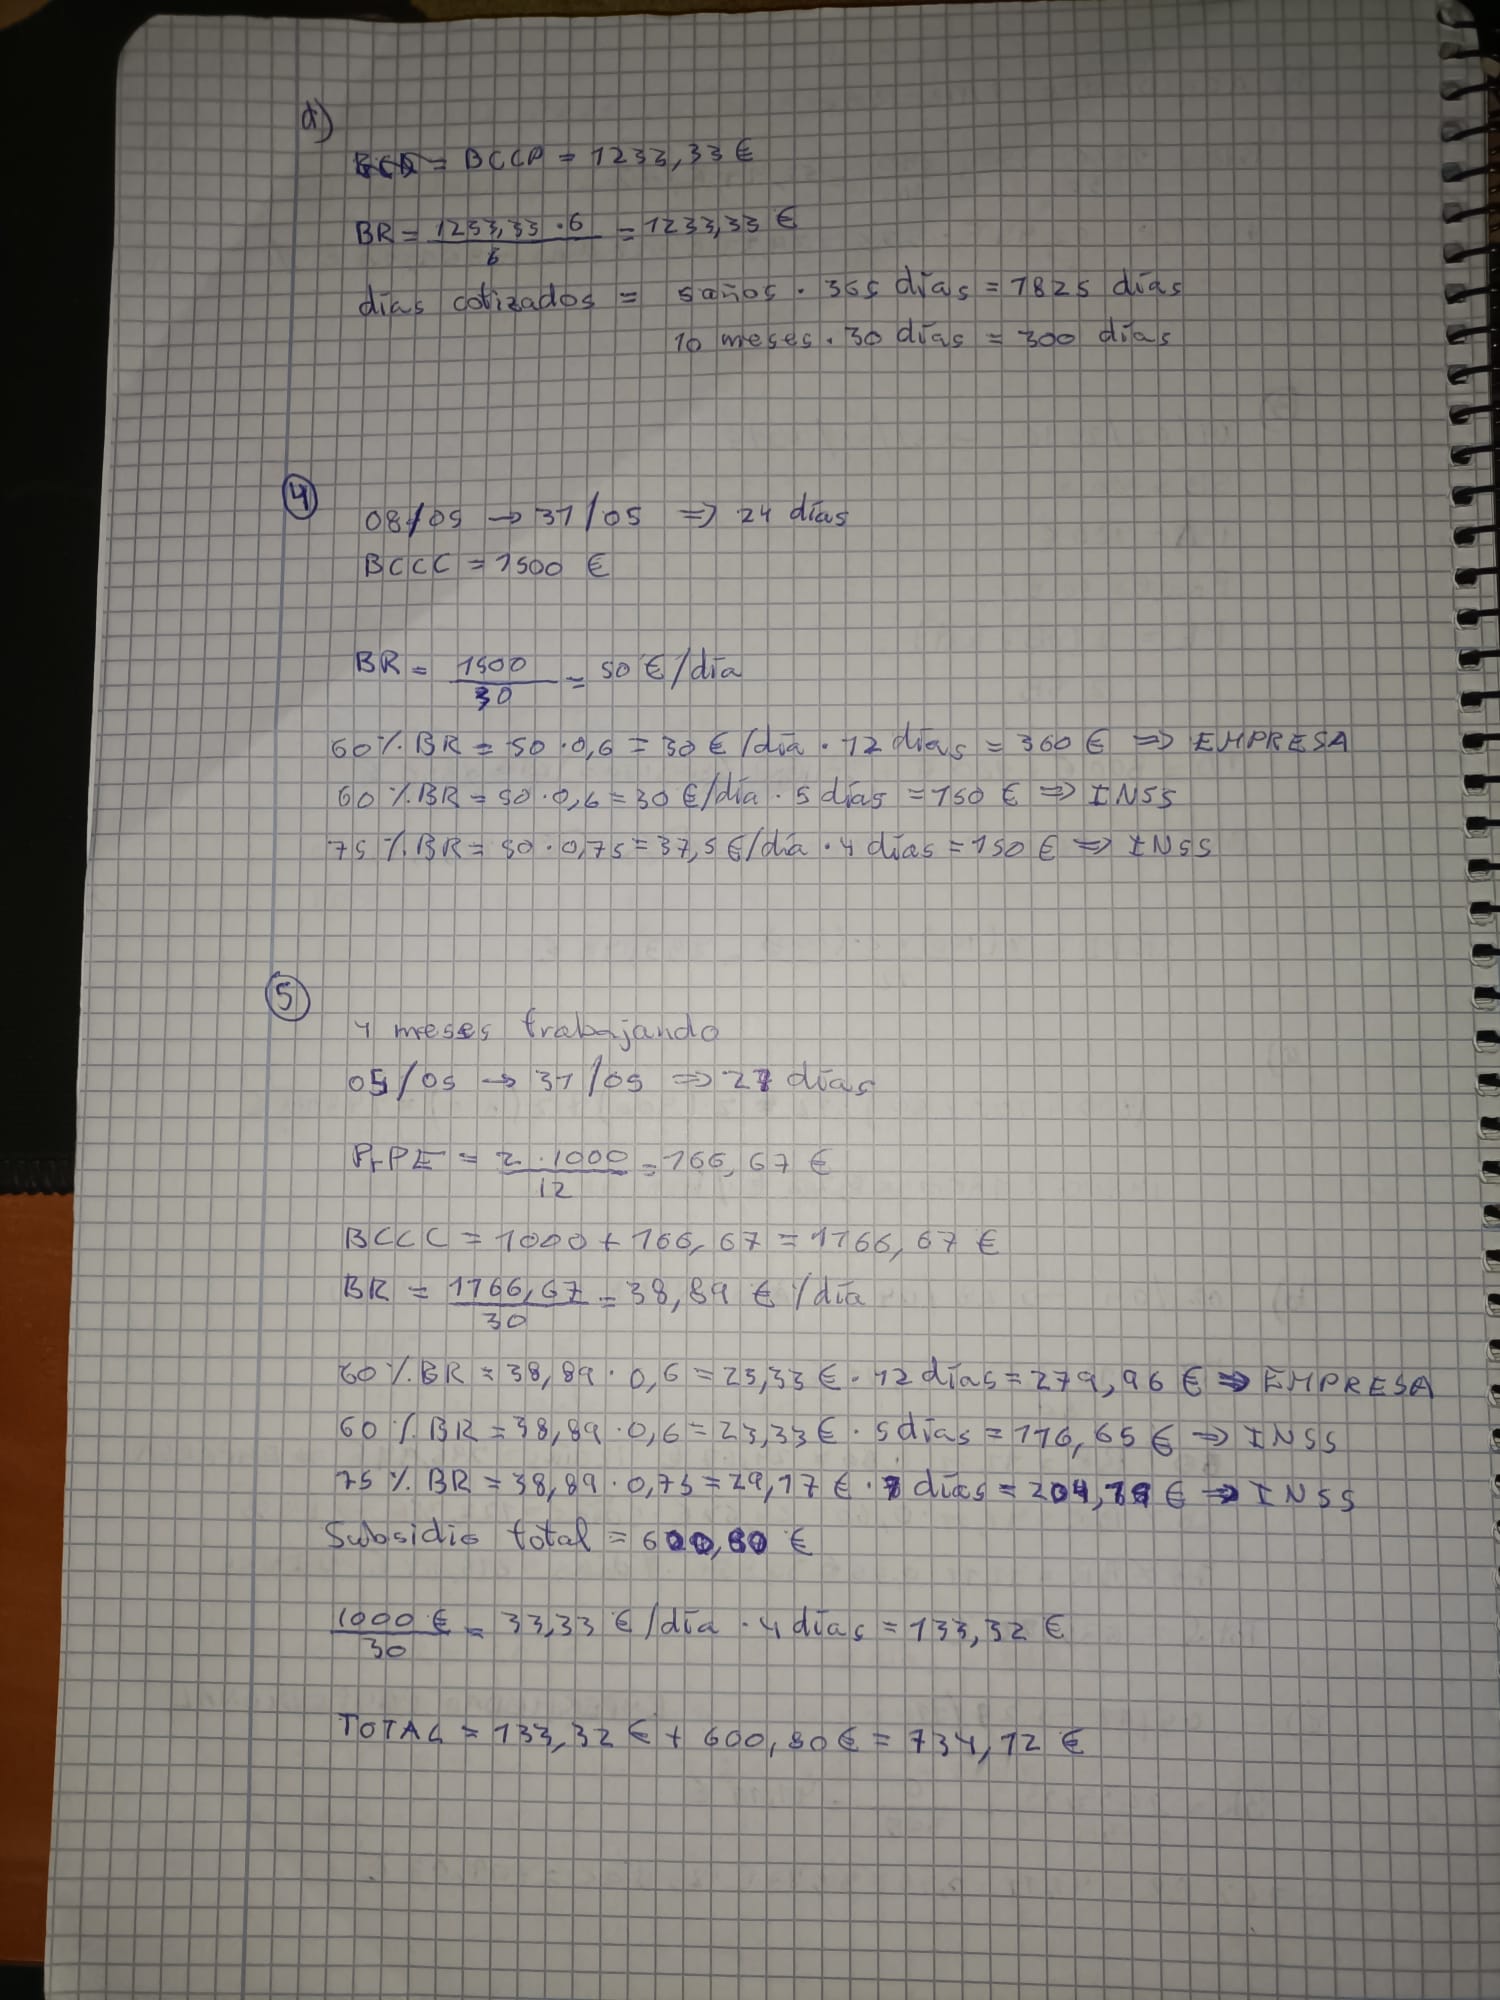 d)
= BCCP = 1233,33 €
BR = 1233,33 · 6 / 6 = 1233,33 €
días cotizados = 5 años · 365 días = 1825 días
10 meses · 30 días = 300 días
4
08/05 → 31/05 ⇒ 24 días
BCCC = 1500 €
BR = 1500 / 30 = 50 € /día
60 % BR = 50 · 0,6 = 30 € /día · 12 días = 360 € ⇒ EMPRESA
60 % BR = 50 · 0,6 = 30 € /día · 5 días = 150 € ⇒ INSS
75 % BR = 50 · 0,75 = 37,5 € /día · 4 días = 150 € ⇒ INSS
5
4 meses trabajando
05/05 → 31/05 ⇒ 27 días
PrPE = 2 · 1000 / 12 = 166,67 €
BCCC = 1000 + 166,67 = 1166,67 €
BR = 1166,67 / 30 = 38,89 € /día
60 % BR = 38,89 · 0,6 = 23,33 € · 12 días = 279,96 € ⇒ EMPRESA
60 % BR = 38,89 · 0,6 = 23,33 € · 5 días = 116,65 € ⇒ INSS
75 % BR = 38,89 · 0,75 = 29,17 € · 7 días = 204,19 € ⇒ INSS
Subsidio total = 600,80 €
1000 € / 30 = 33,33 € /día · 4 días = 133,32 €
TOTAL = 133,32 € + 600,80 € = 734,12 €